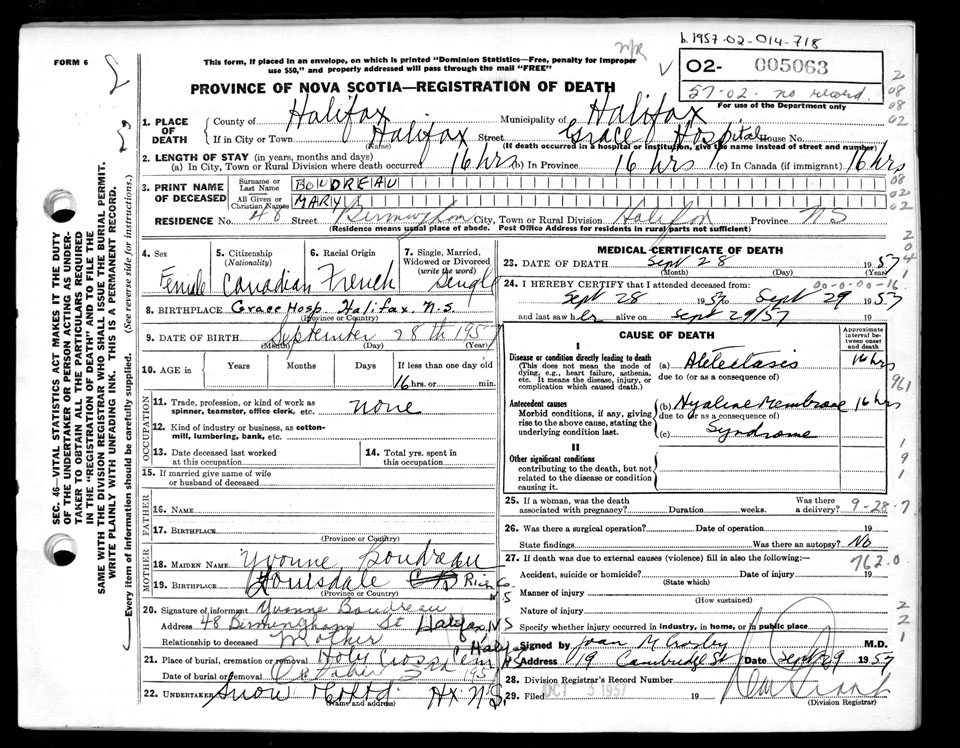 b. 1957-02-014-718
FORM 6
This form, if placed in an envelope, on which is printed "Dominion Statistics—Free, penalty for improper
use $50," and properly addressed will pass through the mail "FREE"
PROVINCE OF NOVA SCOTIA—REGISTRATION OF DEATH
02- 005063
57-02- no record.
For use of the Department only
1. PLACE OF DEATH County of Halifax Municipality of Halifax
If in City or Town Halifax Street Grace Hospital House No.
(Name) (If death occurred in a hospital or institution, give the name instead of street and number)
2. LENGTH OF STAY (in years, months and days)
(a) In City, Town or Rural Division where death occurred 16 hrs (b) In Province 16 hrs (c) In Canada (if immigrant) 16 hrs
3. PRINT NAME OF DECEASED Surname or Last Name BOUDREAU
All Given or Christian Names MARY
RESIDENCE No. 48 Street Birmingham City, Town or Rural Division Halifax Province N S
(Residence means usual place of abode. Post Office Address for residents in rural parts not sufficient)
4. Sex Female
5. Citizenship (Nationality) Canadian
6. Racial Origin French
7. Single, Married, Widowed or Divorced (write the word) Single
8. BIRTHPLACE Grace Hosp. Halifax. N.S.
(Province or Country)
9. DATE OF BIRTH September 28th 1957
(Month) (Day) (Year)
10. AGE in Years Months Days If less than one day old
16 hrs. or min.
OCCUPATION
11. Trade, profession, or kind of work as spinner, teamster, office clerk, etc. none
12. Kind of industry or business, as cotton-mill, lumbering, bank, etc.
13. Date deceased last worked at this occupation
14. Total yrs. spent in this occupation
15. If married give name of wife or husband of deceased
FATHER
16. NAME
17. BIRTHPLACE
(Province or Country)
MOTHER
18. MAIDEN NAME Yvonne Boudreau
19. BIRTHPLACE Louisdale Rich Co. N S
(Province or Country)
20. Signature of informant Yvonne Boudreau
Address 48 Birmingham St Halifax, N S
Relationship to deceased Mother
21. Place of burial, cremation or removal Holy Cross Cem
Date of burial or removal October 3 1957
22. UNDERTAKER Snow Hx. N.S.
(Name and address)
MEDICAL CERTIFICATE OF DEATH
23. DATE OF DEATH Sept 28 1957
(Month) (Day) (Year)
24. I HEREBY CERTIFY that I attended deceased from:
00-0-00-16
Sept 28 1957 to Sept 29 1957
and last saw her alive on Sept 29/57 19
CAUSE OF DEATH
Approximate interval between onset and death
I
Disease or condition directly leading to death
(This does not mean the mode of dying, e.g., heart failure, asthenia, etc. It means the disease, injury, or complication which caused death.)
(a) Atelectasis 16 hrs
due to (or as a consequence of)
Antecedent causes
Morbid conditions, if any, giving rise to the above cause, stating the underlying condition last.
(b) Hyaline Membrane 16 hrs
due to (or as a consequence of)
(c) Syndrome
II
Other significant conditions
contributing to the death, but not related to the disease or condition causing it.
25. If a woman, was the death associated with pregnancy? Duration weeks. Was there a delivery? 9-28-7
26. Was there a surgical operation? Date of operation 19
State findings Was there an autopsy? No
27. If death was due to external causes (violence) fill in also the following:—
762.0
Accident, suicide or homicide? Date of injury 19
(State which)
Manner of injury
(How sustained)
Nature of injury
Specify whether injury occurred in industry, in home, or in public place
Signed by Joan M Crosby M.D.
Address 19 Cambridge St Date Sept 29 1957
28. Division Registrar's Record Number
29. Filed OCT 3 1957 19
(Division Registrar)
SEC. 46—VITAL STATISTICS ACT MAKES IT THE DUTY
OF THE UNDERTAKER OR PERSON ACTING AS UNDER-
TAKER TO OBTAIN ALL THE PARTICULARS REQUIRED
IN THE "REGISTRATION OF DEATH" AND TO FILE THE
SAME WITH THE DIVISION REGISTRAR WHO SHALL ISSUE THE BURIAL PERMIT.
WRITE PLAINLY WITH UNFADING INK. THIS IS A PERMANENT RECORD.
Every item of information should be carefully supplied. (See reverse side for instructions.)